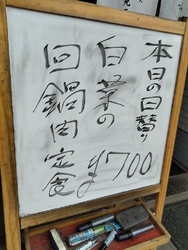 本日の日替り
白菜の
回鍋肉定食
¥700